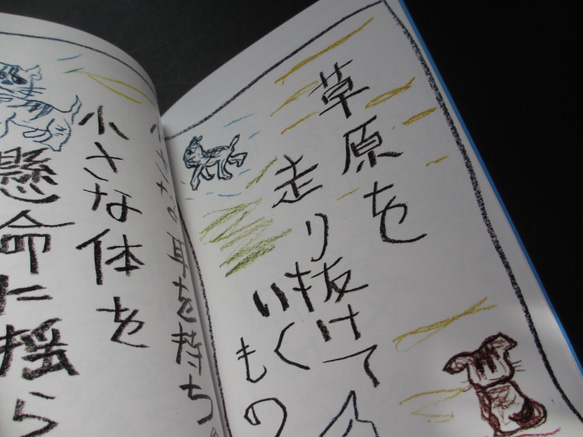 草原を
走り抜けて
いくもの
耳を持ち
小さな体を
懸命に揺ら